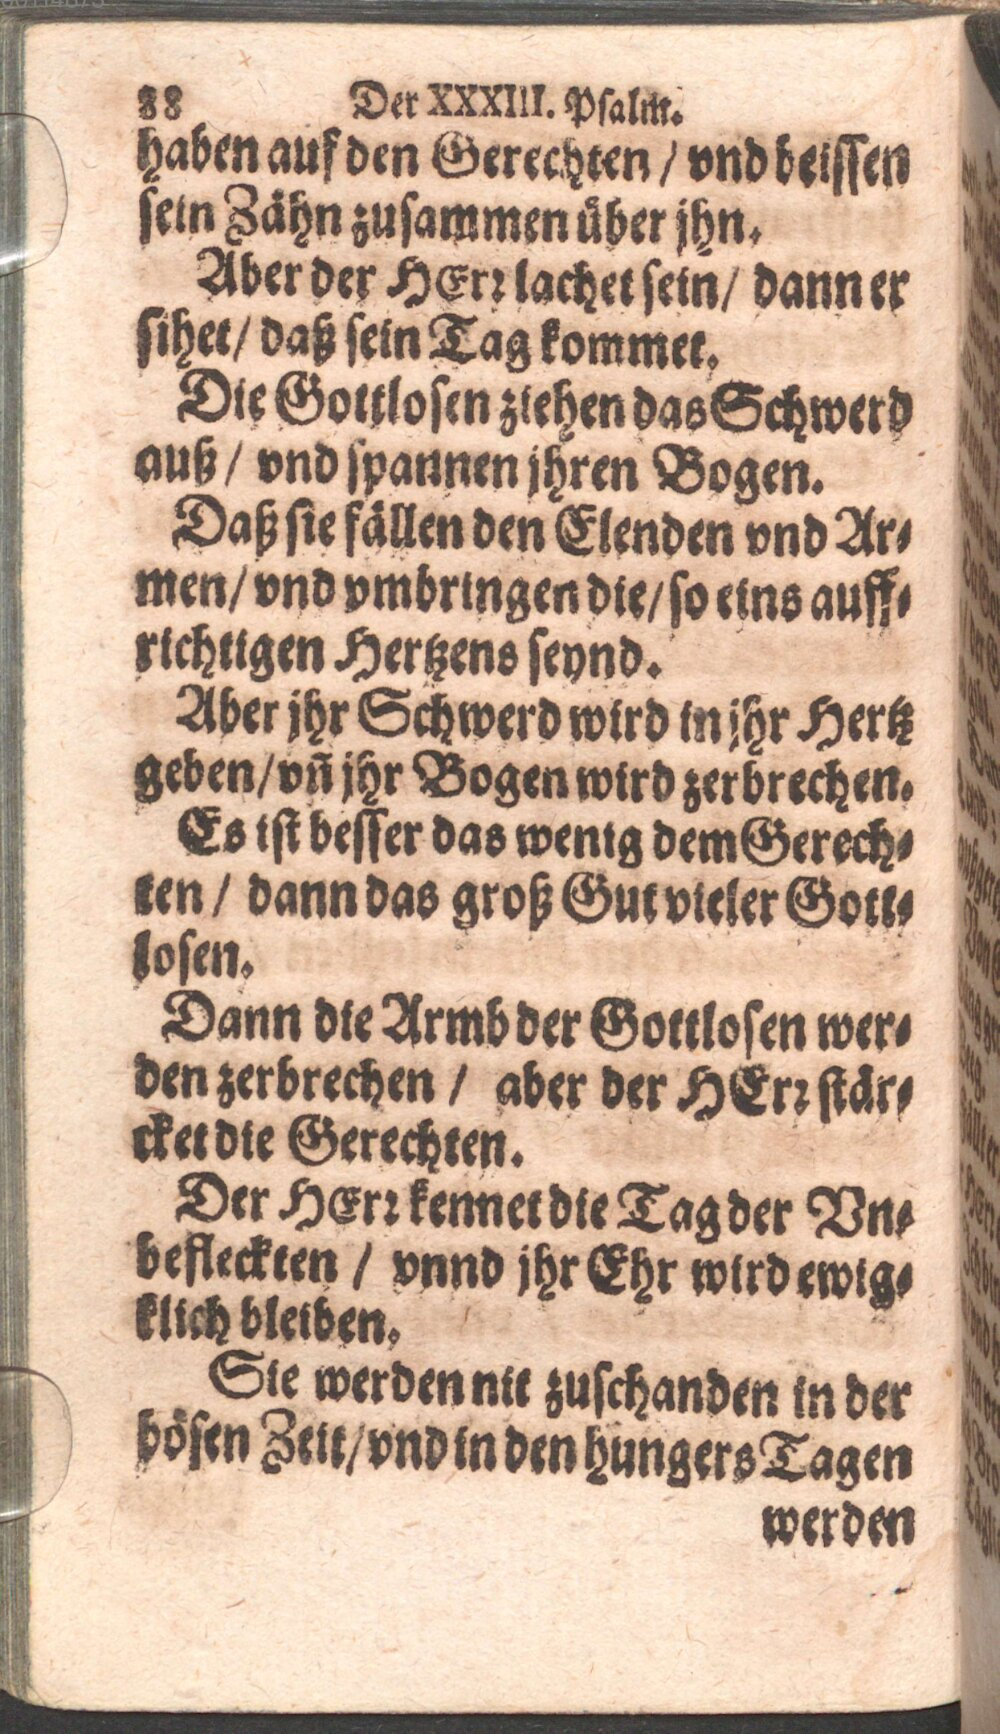 88 Der XXXIII. Psalm.
haben auf den Gerechten / vnd beissen
sein Zähn zusammen über jhn.
Aber der HErr lachet sein / dann er
sihet / daß sein Tag kommet.
Die Gottlosen ziehen das Schwerd
auß / vnd spannen jhren Bogen.
Daß sie fällen den Elenden vnd Ar-
men / vnd vmbringen die / so eins auff-
richtigen Hertzens seynd.
Aber jhr Schwerd wird in jhr Hertz
geben / vñ jhr Bogen wird zerbrechen.
Es ist besser das wenig dem Gerech-
ten / dann das groß Gut vieler Gott-
losen.
Dann die Armb der Gottlosen wer-
den zerbrechen / aber der HErr stär-
cket die Gerechten.
Der HErr kennet die Tag der Vn-
befleckten / vnnd jhr Ehr wird ewig-
klich bleiben.
Sie werden nit zuschanden in der
bösen Zeit / vnd in den hungers Tagen
werden